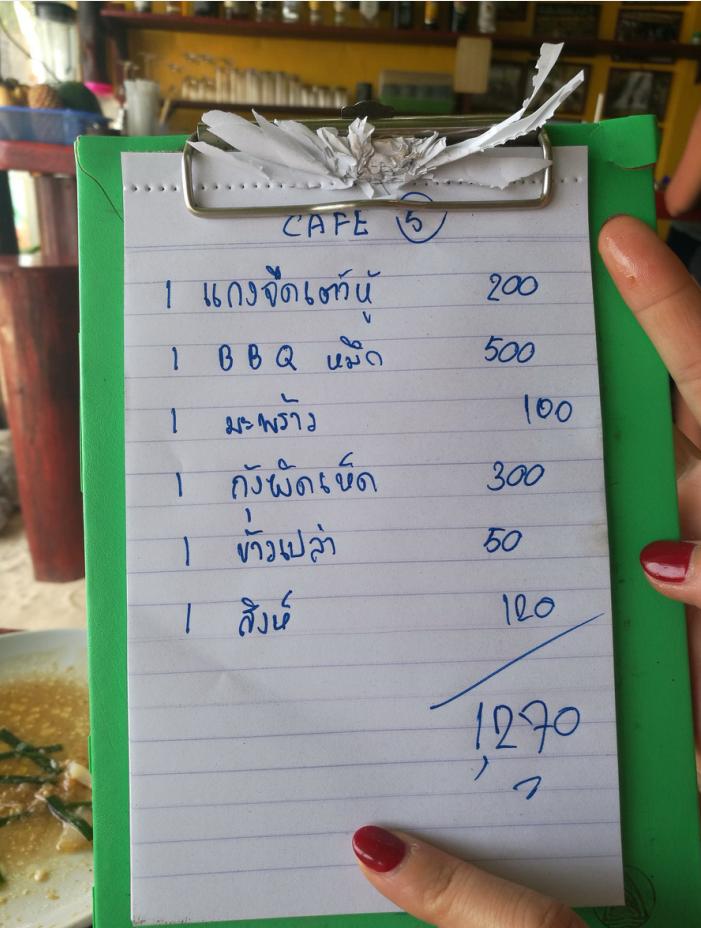 CAFE 5
1 แกงจืดเต้าหู้ 200
1 BBQ หมึก 500
1 มะพร้าว 100
1 กุ้งผัดเห็ด 300
1 ข้าวเปล่า 50
1 สิงห์ 120
1,270